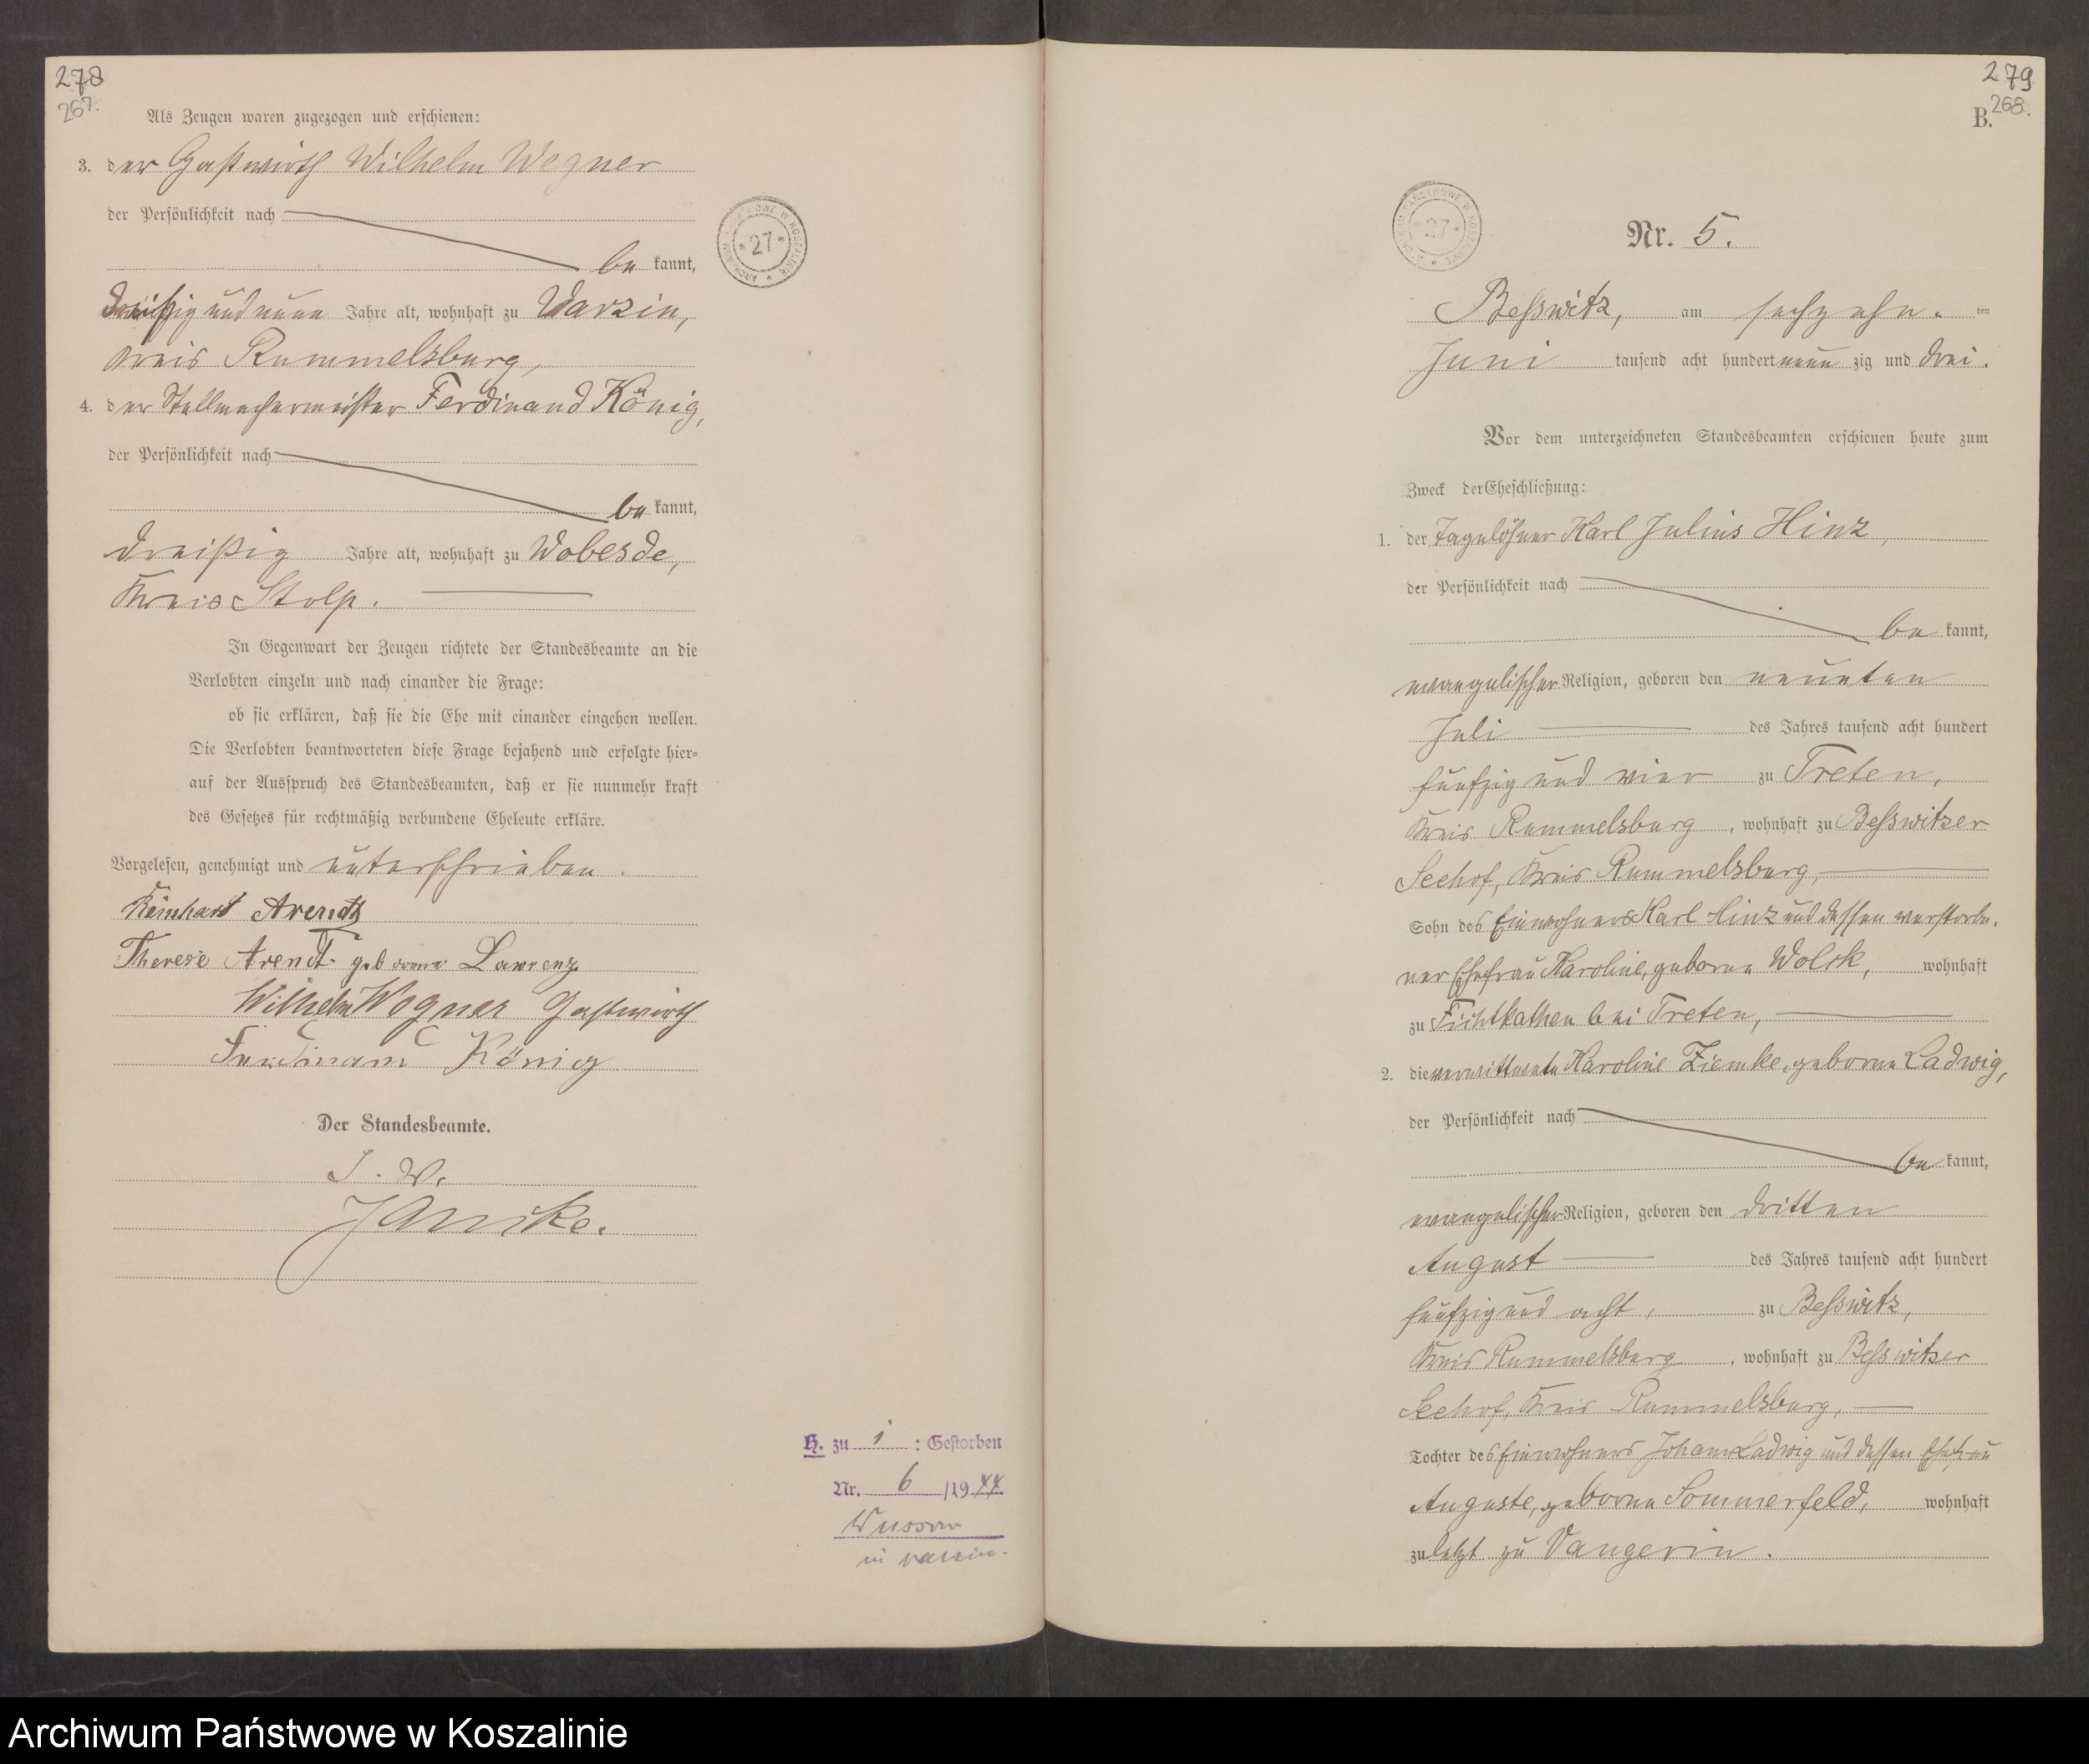 278
267.
Als Zeugen waren zugezogen und erschienen:
3. der Gastwirth Wilhelm Wegner
der Persönlichkeit nach
be kannt,
dreißig und neun Jahre alt, wohnhaft zu Varzin,
Kreis Rummelsburg,
4. der Stellmachermeister Ferdinand König,
der Persönlichkeit nach
be kannt,
dreißig Jahre alt, wohnhaft zu Wobesde,
Kreis Stolp.
In Gegenwart der Zeugen richtete der Standesbeamte an die
Verlobten einzeln und nach einander die Frage:
ob sie erklären, daß sie die Ehe mit einander eingehen wollen.
Die Verlobten beantworteten diese Frage bejahend und erfolgte hier-
auf der Ausspruch des Standesbeamten, daß er sie nunmehr kraft
des Gesetzes für rechtmäßig verbundene Eheleute erkläre.
Vorgelesen, genehmigt und unterschrieben.
Reinhard Arendt
Therese Arendt geborene Lawrenz
Wilhelm Wegner Gastwirth
Ferdinand König
Der Standesbeamte.
I. V.
Janike.
ARCHIWUM PAŃSTWOWE W KOSZALINIE
* 27 *
H. zu 1 : Gestorben
Nr. 6 /1944
Wussow
in Varzin.
279
268.
B.
ARCHIWUM PAŃSTWOWE W KOSZALINIE
* 27 *
Nr. 5.
Beßwitz, am sechzehn ten
Juni tausend acht hundert neun zig und drei.
Vor dem unterzeichneten Standesbeamten erschienen heute zum
Zweck der Eheschließung:
1. der Tagelöhner Karl Julius Hinz,
der Persönlichkeit nach
be kannt,
evangelischer Religion, geboren den neunten
Juli des Jahres tausend acht hundert
fünfzig und vier zu Treten,
Kreis Rummelsburg, wohnhaft zu Beßwitzer
Seehof, Kreis Rummelsburg,
Sohn des Einwohners Karl Hinz und dessen verstorbe-
ner Ehefrau Karoline, geborne Wolsk, wohnhaft
zu Fichtkathen bei Treten,
2. die verwittwete Karoline Ziemke, geborne Ladwig,
der Persönlichkeit nach
be kannt,
evangelischer Religion, geboren den dritten
August des Jahres tausend acht hundert
fünfzig und acht, zu Beßwitz,
Kreis Rummelsburg, wohnhaft zu Beßwitzer
Seehof, Kreis Rummelsburg,
Tochter des Einwohners Johann Ladwig und dessen Ehefrau
Auguste, geborne Sommerfeld, wohnhaft
zuletzt zu Vangerin.
Archiwum Państwowe w Koszalinie